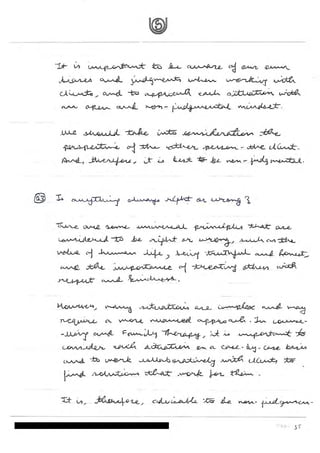 5
It is important to be aware of our own
biases and judgments when working with
clients, and to approach each situation with
an open and non-judgmental mindset.
We should take into consideration the
perspective of the other person - the client.
And, therefore, it is best to be non-judgmental.
Is anything always right or wrong?
There are some universal principles that are
considered to be right or wrong, such as the
value of human life, being truthful and honest,
and the importance of treating others with
respect and kindness.
However, many situations are complex and may
require a more nuanced approach. In couns-
elling and Family Therapy, it is important to
consider each situation on a case-by-case basis
and to work collaboratively with clients to
find solutions that work for them.
It is, therefore, advisable to be non-judgmen-